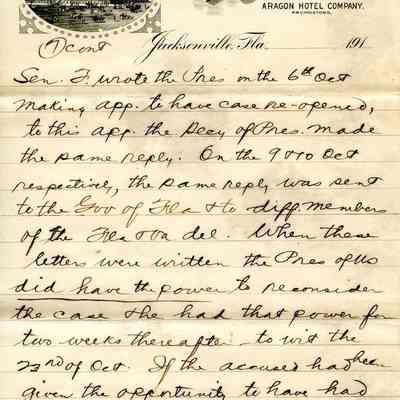 ARAGON HOTEL COMPANY,
PROPRIETORS.
7) cont Jacksonville, Fla. 191
Sen. F. wrote the Pres on the 6th Oct
making app. to have case re-opened,
to this app. the Secy of Pres. made
the same reply. On the 9 & 10 Oct
respectively, the same reply was sent
to the Gov of Fla & to diff. members
of the Fla & Va del. When these
letters were written the Pres of US
did have the power to reconsider
the case & he had that power for
two weeks thereafter - to wit the
23rd of Oct. If the accused had been
given the opportunity to have had